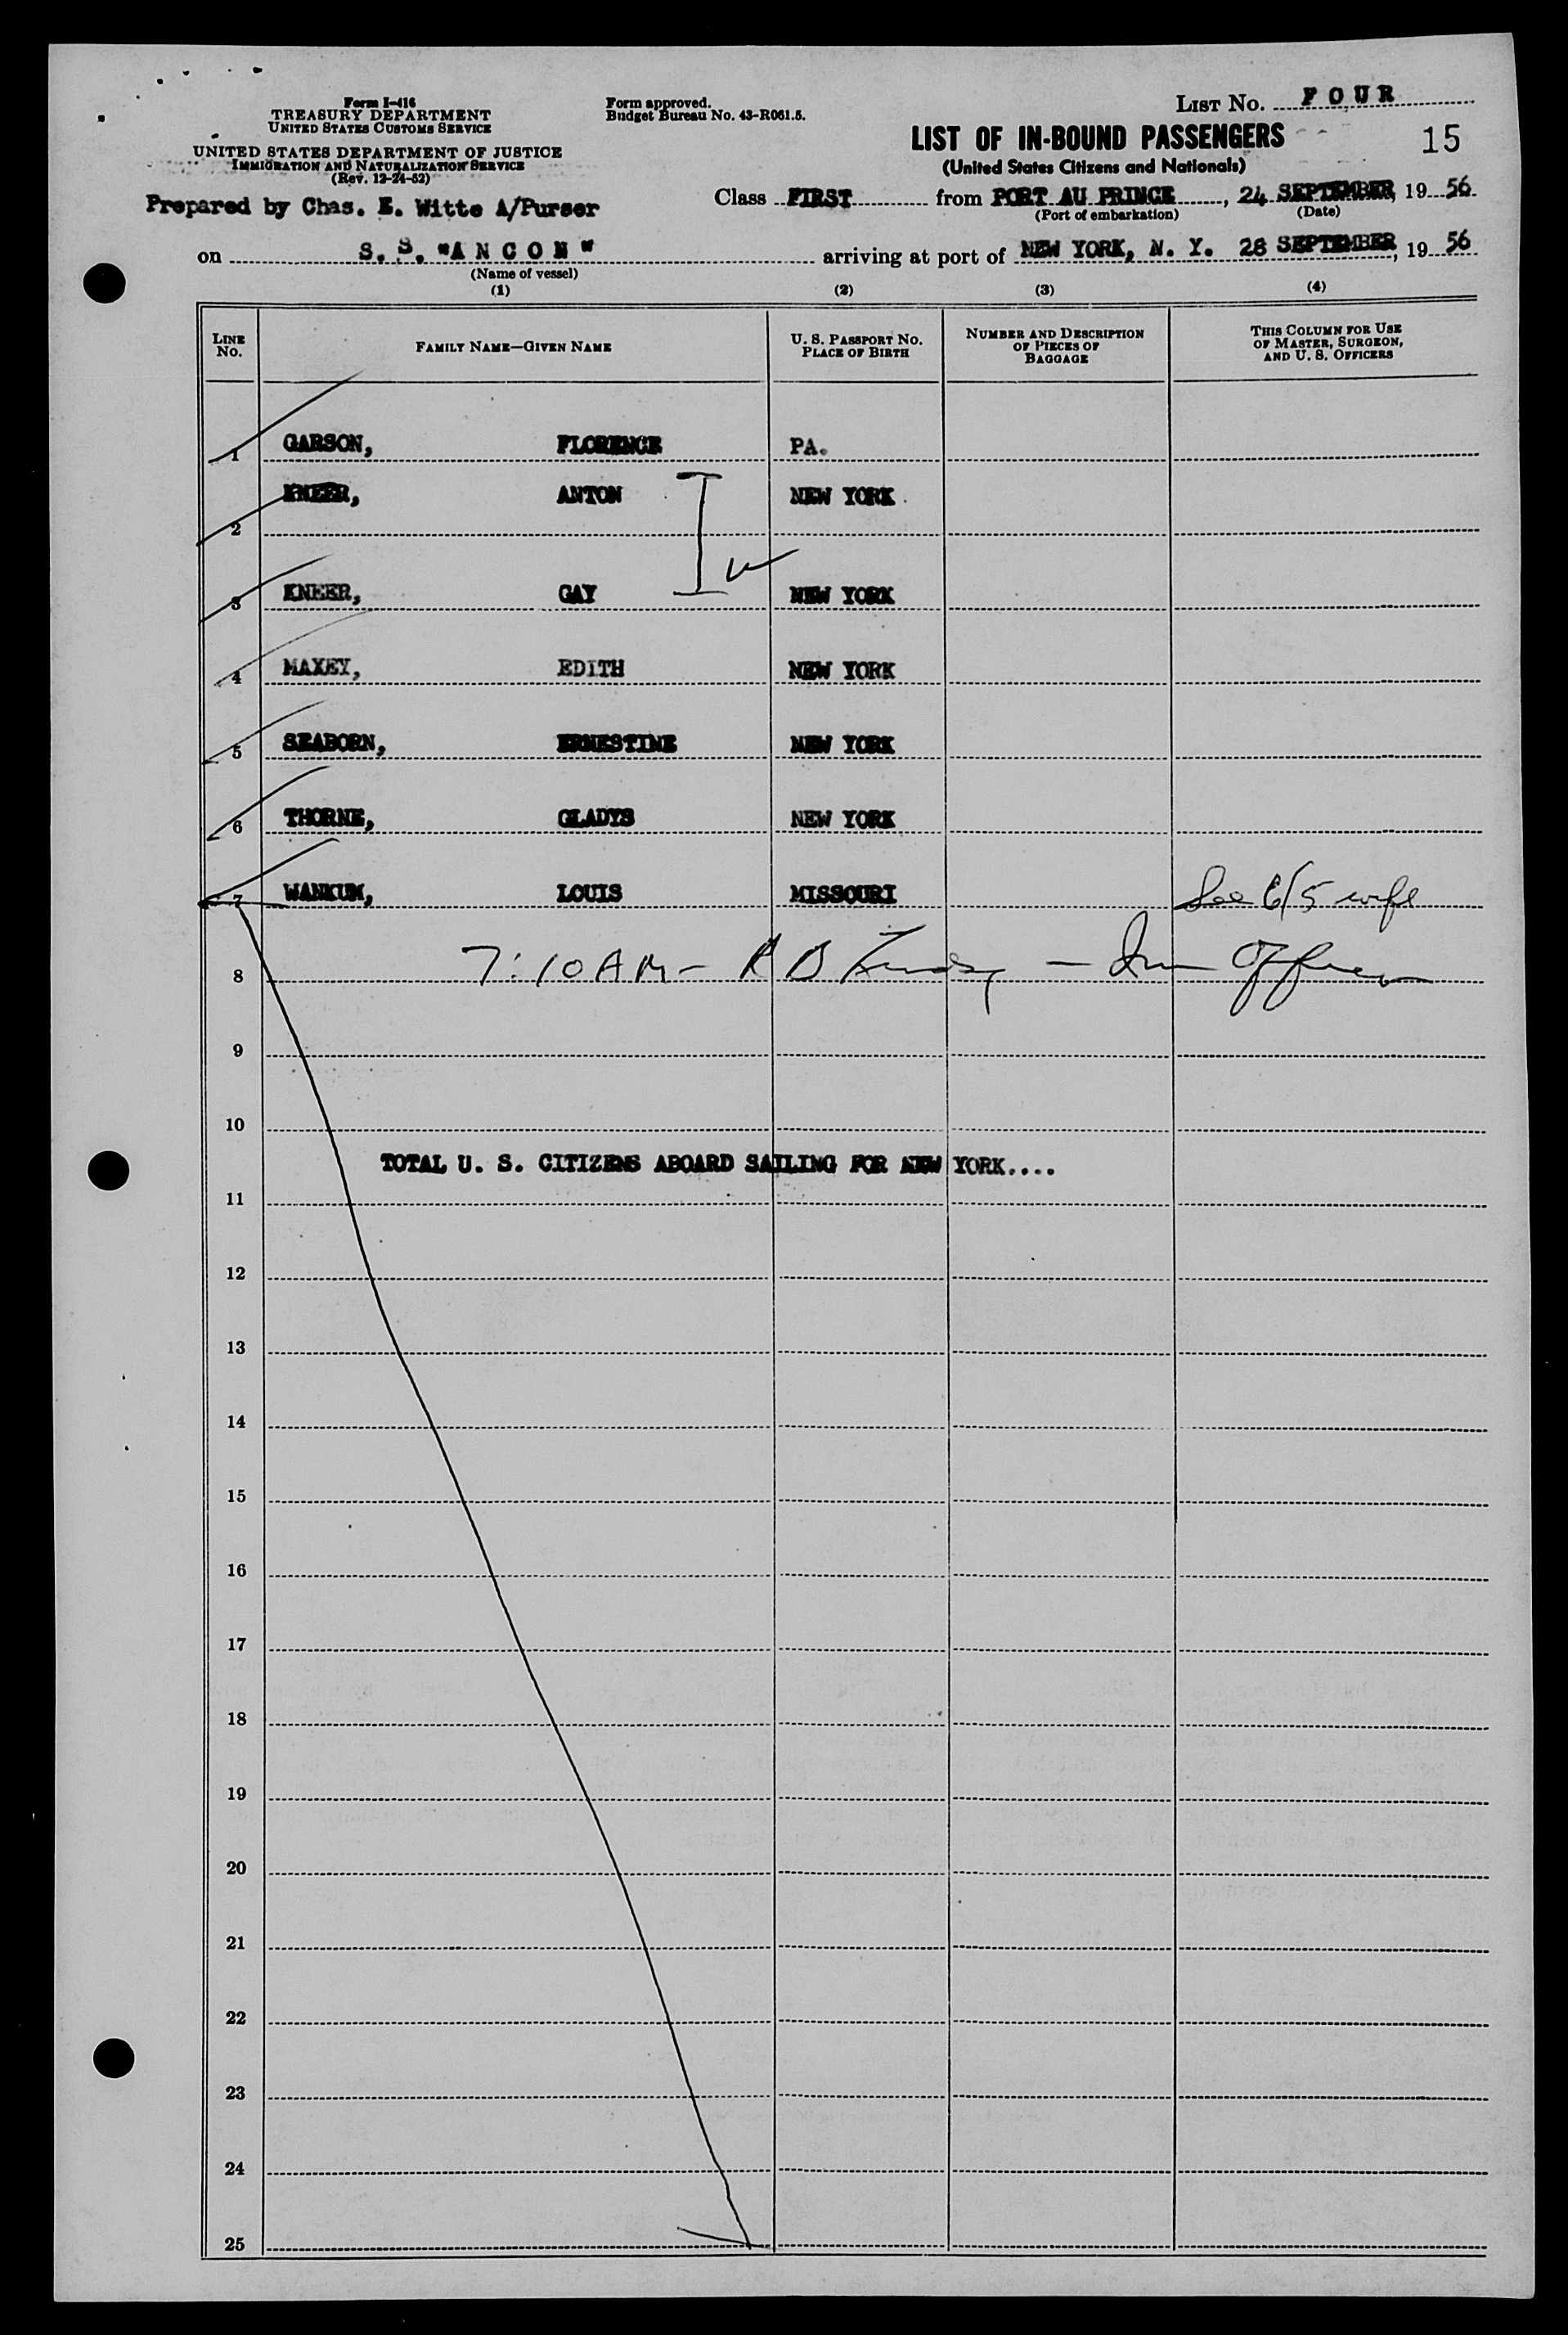 Form I-416
TREASURY DEPARTMENT
UNITED STATES CUSTOMS SERVICE
UNITED STATES DEPARTMENT OF JUSTICE
IMMIGRATION AND NATURALIZATION SERVICE
(Rev. 12-24-52)
Form approved.
Budget Bureau No. 43-R061.5.
LIST NO. FOUR
LIST OF IN-BOUND PASSENGERS
15
(United States Citizens and Nationals)
Prepared by Chas. E. Witte A/Purser
Class FIRST from PORT AU PRINCE, 24 SEPTEMBER, 19 56
(Port of embarkation) (Date)
on S. S. "ANCON" arriving at port of NEW YORK, N. Y. 28 SEPTEMBER, 19 56
(Name of vessel)
(1) (2) (3) (4)
LINE NO. FAMILY NAME—GIVEN NAME U. S. PASSPORT NO. PLACE OF BIRTH NUMBER AND DESCRIPTION OF PIECES OF BAGGAGE THIS COLUMN FOR USE OF MASTER, SURGEON, AND U. S. OFFICERS
1 GARSON, FLORENCE PA.
2 KNEER, ANTON NEW YORK
3 KNEER, GAY NEW YORK
4 MAXEY, EDITH NEW YORK
5 SEABORN, ERNESTINE NEW YORK
6 THORNE, GLADYS NEW YORK
7 WANKUM, LOUIS MISSOURI See 6/5 wife
8 7:10 AM - R B — Imm Officer
9
10
TOTAL U. S. CITIZENS ABOARD SAILING FOR NEW YORK....
11
12
13
14
15
16
17
18
19
20
21
22
23
24
25